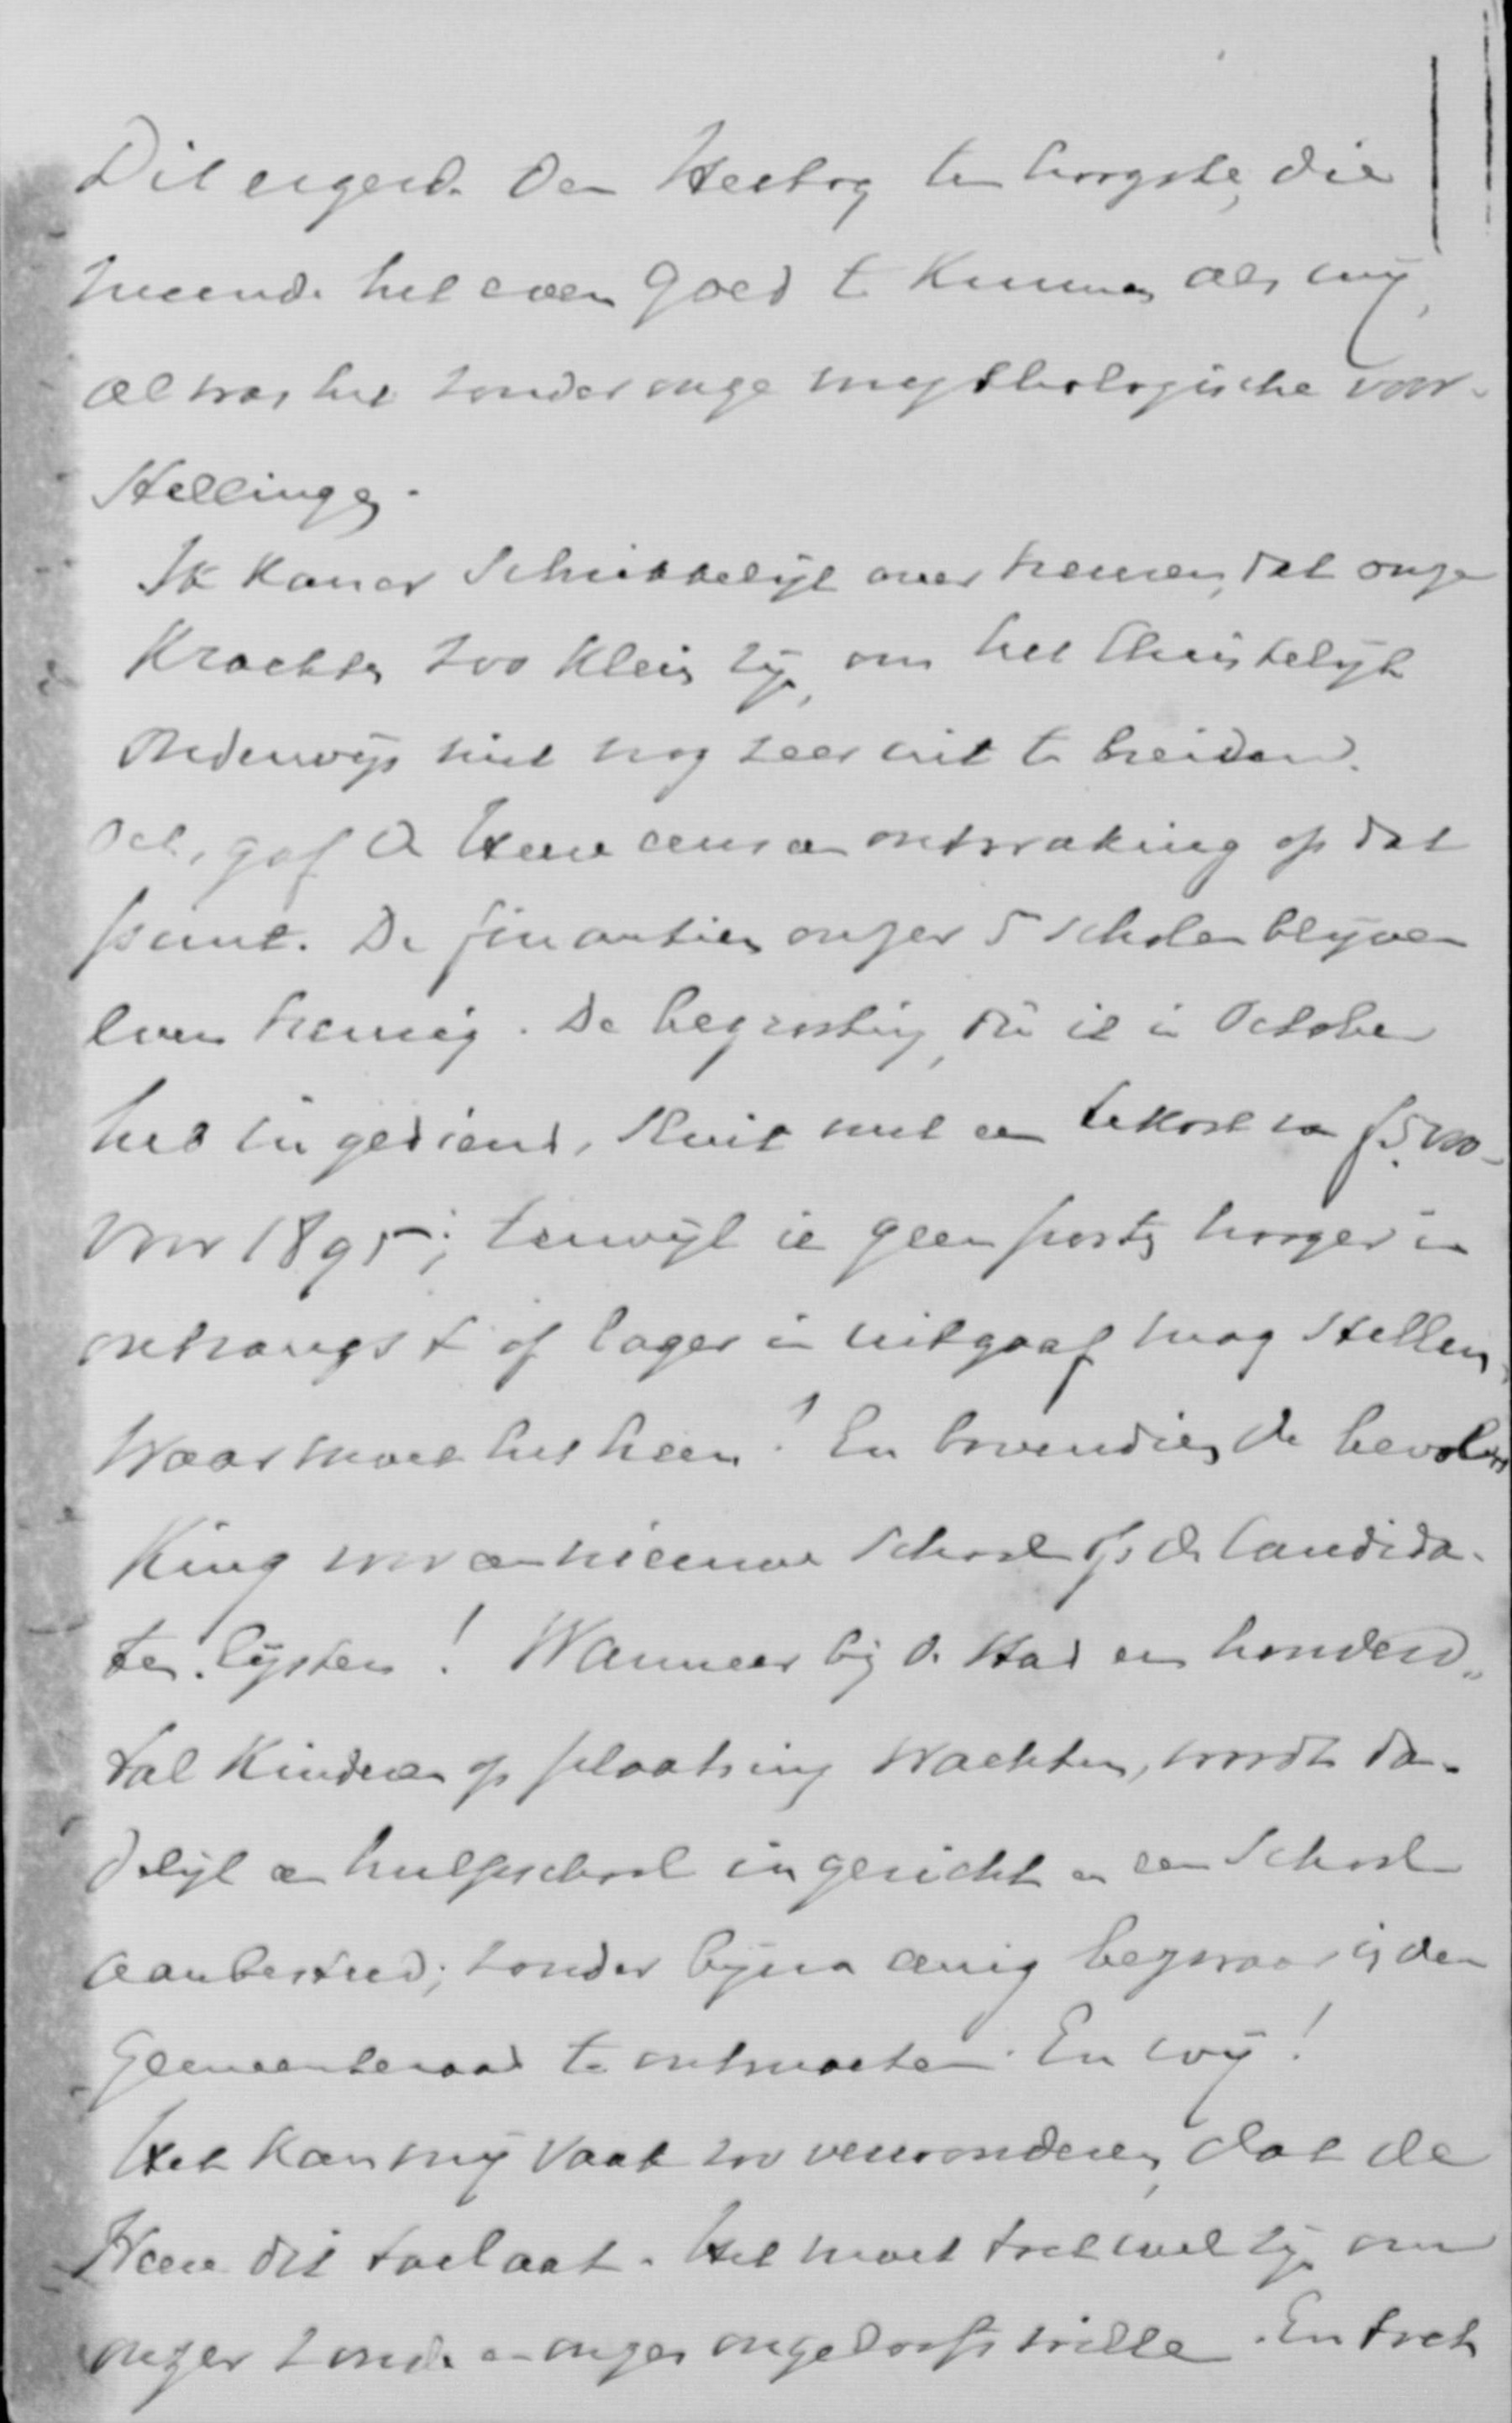 Dit ergerde den Hertog ten hoogste, die
meende het even goed te kunnen als wij,
al was het zonder onze mythologische voor-
stellingen.
Ik kan er schrikkelijk over treuren, dat onze
krachten zoo klein zijn, om het Christelijk
Onderwijs niet nog zeer uit te breiden.
Och, gaf de Heere eens een ontwaking op dat
punt. De finantien onzer 5 scholen blijven
even treurig. De begrooting, die ik in October
heb ingediend, sluit met een tekort van f 5.000-
voor 1895; terwijl ik geen posten hooger in
ontvangst of lager in uitgaaf mag stellen.
Waar moet het heen! En bovendien de bevol-
king voor een nieuwe School op de Candida-
ten-lijsten! Wanneer bij de Stad een honderd-
tal kinderen op plaatsing wachten, wordt da-
delijk een hulpschool ingericht en een School
aanbesteed; zonder bijna eenig bezwaar in den
Gemeenteraad te ontmoeten. En wij!
Het kan mij vaak zoo verwonderen, dat de
Heere dit toelaat. Het moet toch wel zijn om
onzer zonde en onzer ongeloofs wille. En toch